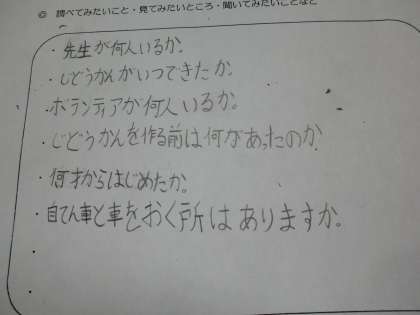 ◎ 調べてみたいこと・見てみたいところ・聞いてみたいことなど
・先生が何人いるか。
・じどうかんがいつできたか。
・ボランティアが何人いるか。
・じどうかんを作る前は何があったのか
・何才からはじめたか。
・自てん車と車をおく所はありますか。
・
・